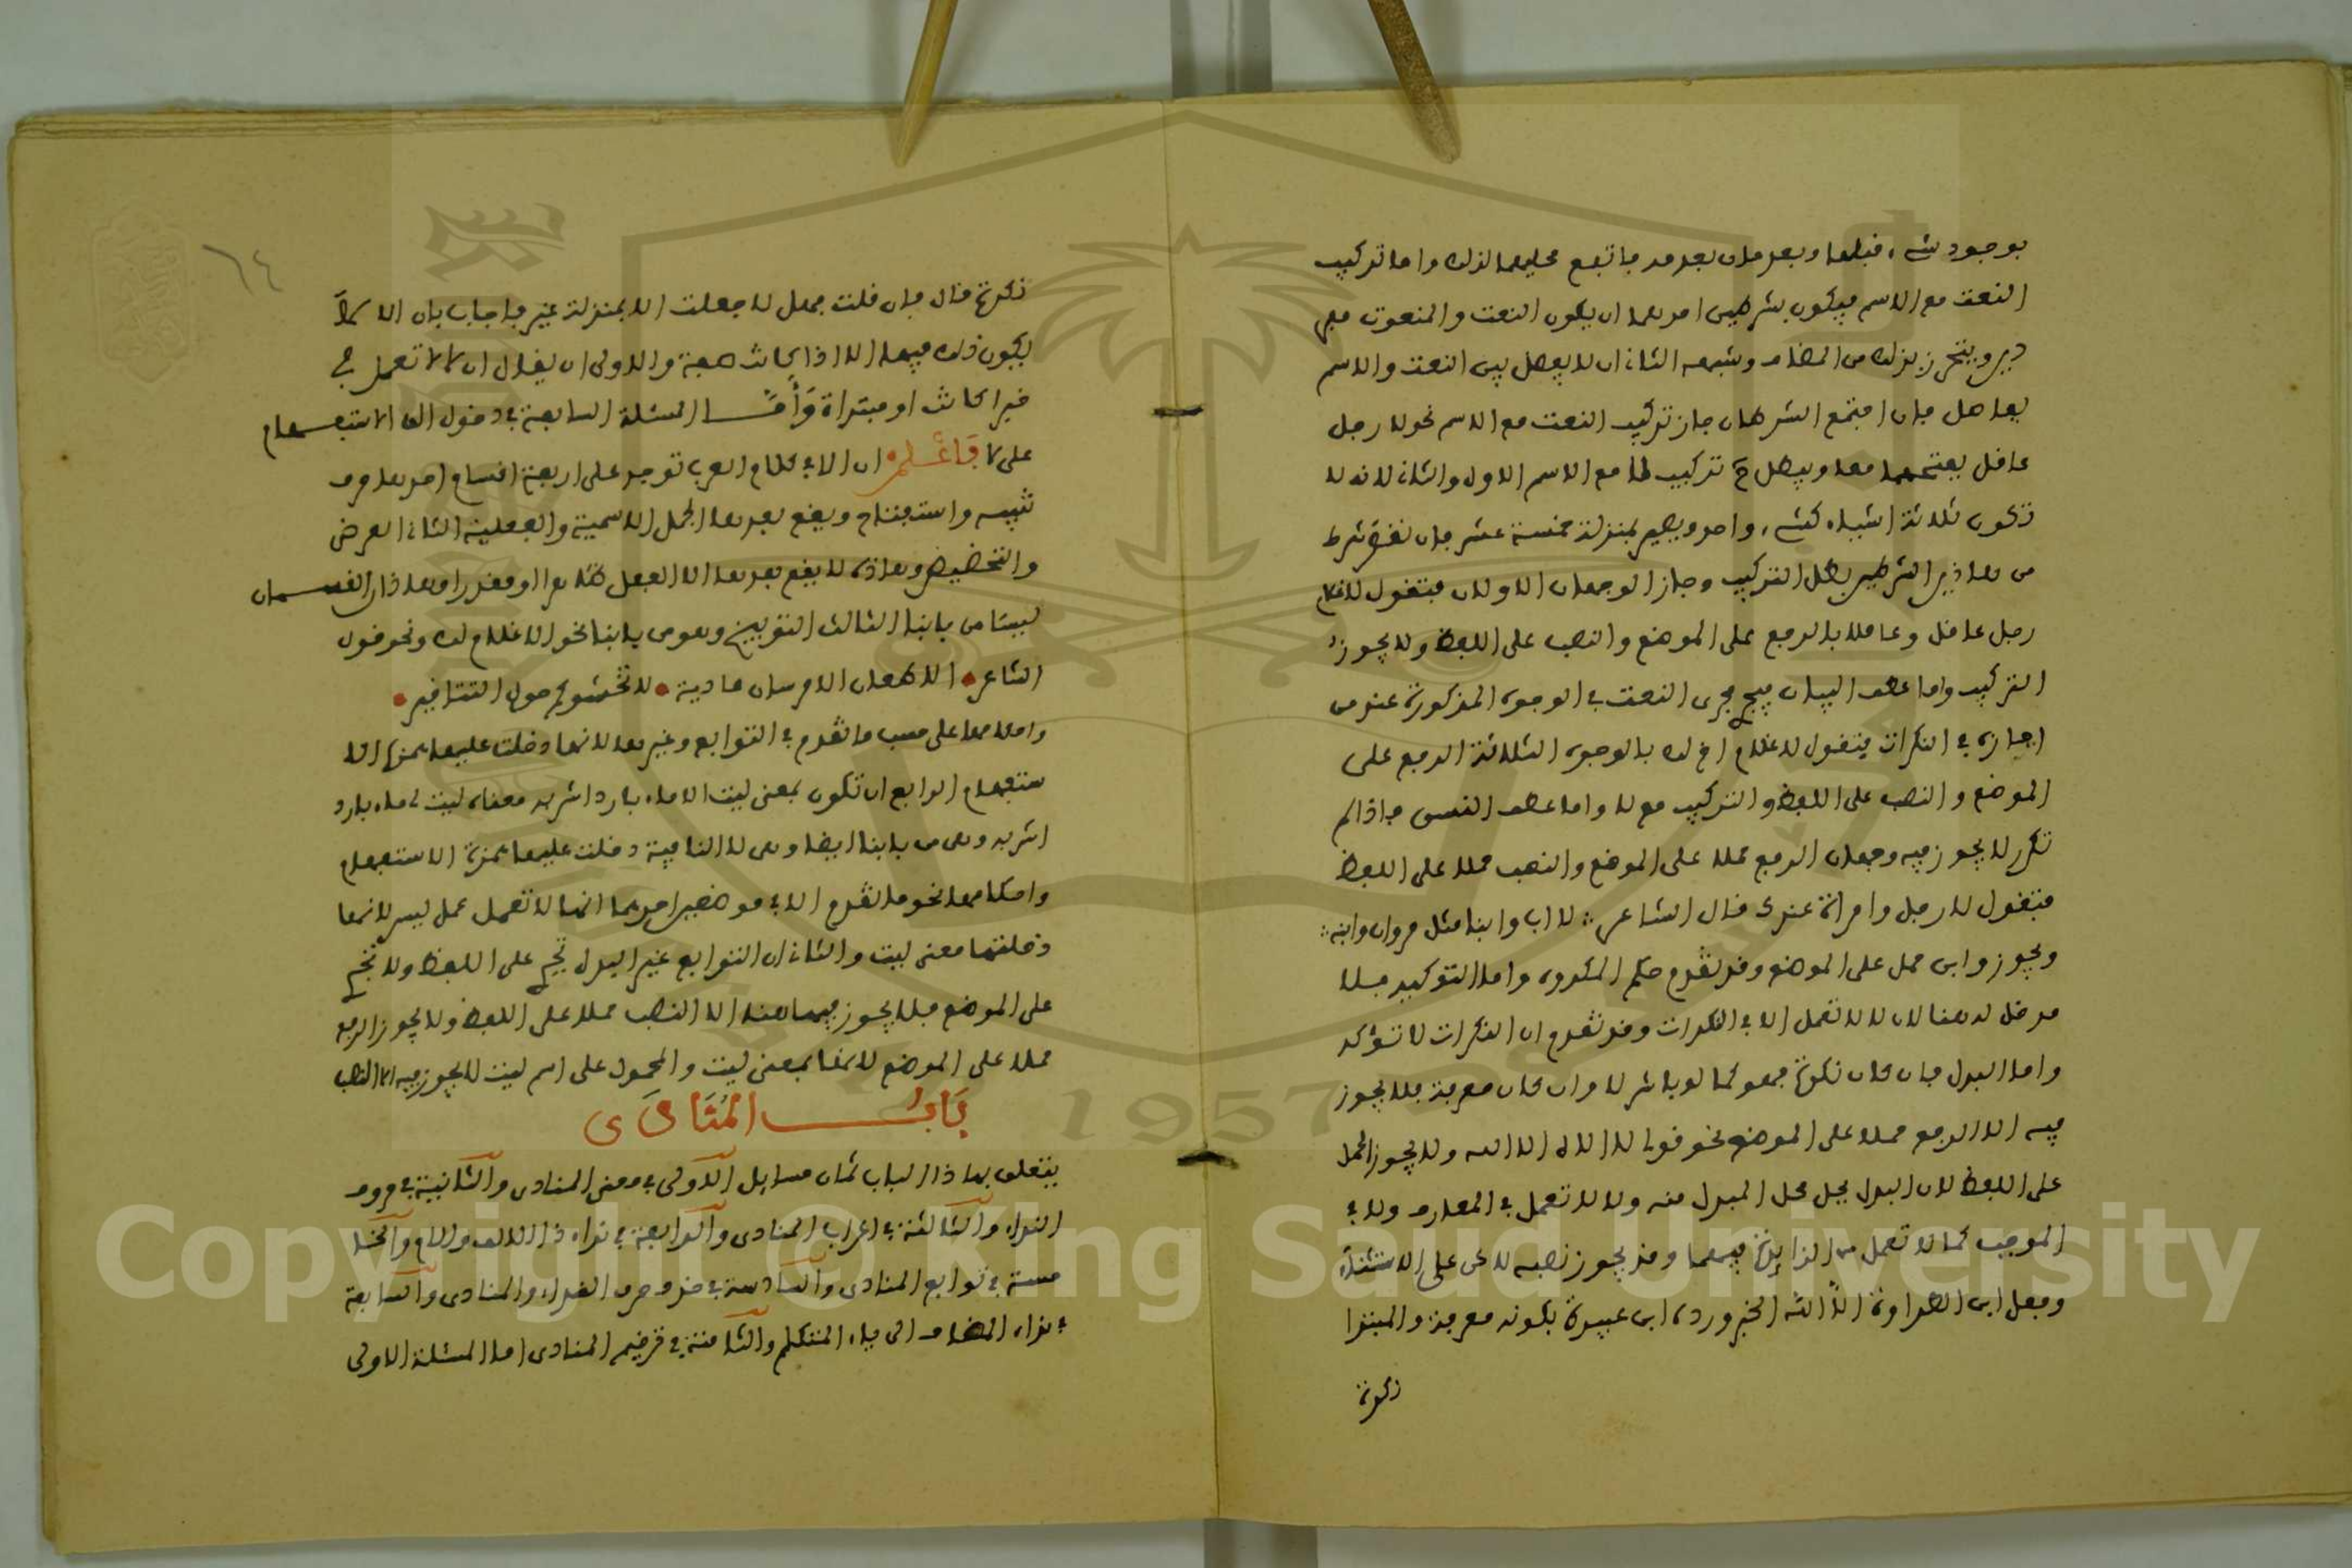 بوجود شيء قبلها وبعدها بعد ما تبع محلها لذلك واما تركيب
النعت مع الاسم فيكون بشرطين احدهما ان يكون النعت والمنعوت مفر
دين ويتحرز بذلك من المضاف وشبهه الثاني ان لا يفصل بين النعت والاسم
بفاصل فان اجتمع الشرطان جاز تركيب النعت مع الاسم نحو لا رجل
عاقل بفتحهما معا ويبطل ح تركيب لا مع الاسم الاول والثاني لانه لا
تكون ثلاثة اشياء كشيء واحد ويصير بمنزلة خمسة عشر فان نقض شرط
من هاذين الشرطين بطل التركيب وجاز الوجهان الاولان فتقول لا غلام
رجل عاقل وعاقلا بالرفع على الموضع والنصب على اللفظ ولا يجوز
التركيب واما عطف البيان فيجري مجرى النعت في الوجوه المذكورة عند من
اجازه في النكرات فتقول لا غلام اخ لك بالوجوه الثلاثة الرفع على
الموضع والنصب على اللفظ والتركيب مع لا واما عطف النسق فاذا لم
تكرر لا يجوز فيه وجهان الرفع حملا على الموضع والنصب حملا على اللفظ
فتقول لا رجل وامراة عندك قال الشاعر لا اب وابنا مثل مروان وابنه
ويجوز وابن حمل على الموضع وقد تقدم حكم المكررة واما التوكيد فلا
مدخل له هنا لان لا لا تعمل الا في النكرات وقد تقدم ان النكرات لا تؤكد
واما البدل فان كان نكرة فهو كما لو باشر لا وان كان معرفة فلا يجوز
فيه الا الرفع حملا على الموضع نحو قولنا لا اله الا الله ولا يجوز الحمل
على اللفظ لان البدل يحل محل المبدل منه ولا لا تعمل في المعارف ولا في
الموجب كما لا تعمل من الزايدة فيهما وقد يجوز نصبه لاعن على الاستثناء
وجعل ابن الطراوة الا الله الخبر ورده ابن عبيدة بكونه معرفة والمبتدا
نكرة
٦٤
نكرة قال فان قلت فهل لا جعلت الا بمنزلة غير فاجاب بان الا كلا
يكون ذلك فيها الا اذا كانت صفة والاولى ان يقال ان لا لا تعمل في
خبرا كانت او مبتداة وأمّا المسئلة السابعة في دخول الف الاستفهام
على لا فاعلم ان الا في كلام العرب توجد على اربعة اقسام احدها حرف
تنبيه واستفتاح ويقع بعدها الجمل الاسمية والفعلية الثاني العرض
والتحضيض وهاذه لا يقع بعدها الا الفعل ظاهرا او مقدرا وهاذان القسمان
ليستا من بابنا الثالث التوبيخ وهو من بابنا نحو الا غلام لك ونحو قول
الشاعر الا طعان الا فرسان عادية لا تجشؤكم حول التنانير
واحكامها على حسب ما تقدم في التوابع وغيرها لانها دخلت عليها همزة الا
ستفهام الرابع ان تكون بمعنى ليت الا ماء بارد اشربه معناه ليت لي ماء بارد
اشربه وهي من بابنا ايضا وهي لا النافية دخلت عليها همزة الاستفهام
واحكامها نحو ما تقدم الا في موضعين احدهما انها لا تعمل عمل ليس لانها
دخلتها معنى ليت والثاني ان التوابع غير البدل تجري على اللفظ ولا تجري
على الموضع فلا يجوز فيها هنا الا النصب حملا على اللفظ ولا يجوز الرفع
حملا على الموضع لانها بمعنى ليت والمحمول على اسم ليت لا يجوز فيه الا النصب
بَابُ المُنَادَى
يتعلق بهاذا الباب ثمان مسايل الاولى في معنى المنادى والثانية في حروف
النداء والثالثة في اعراب المنادى والرابعة في نداء ذا الالف واللام والخا
مسة في توابع المنادى والسادسة في حذف حرف النداء والمنادى والسابعة
في نداء المضاف الى ياء المتكلم والثامنة في ترخيم المنادى اما المسئلة الاولى
Copyright © King Saud University
1957